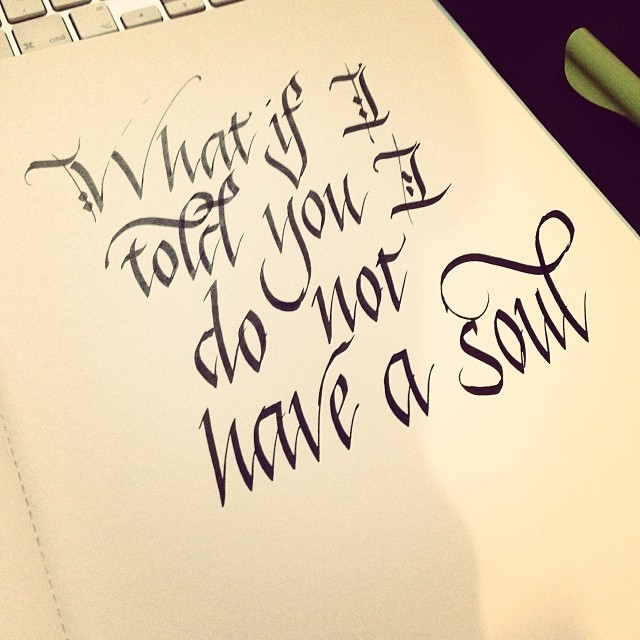 cmd
What if I
told you I
do not
have a soul